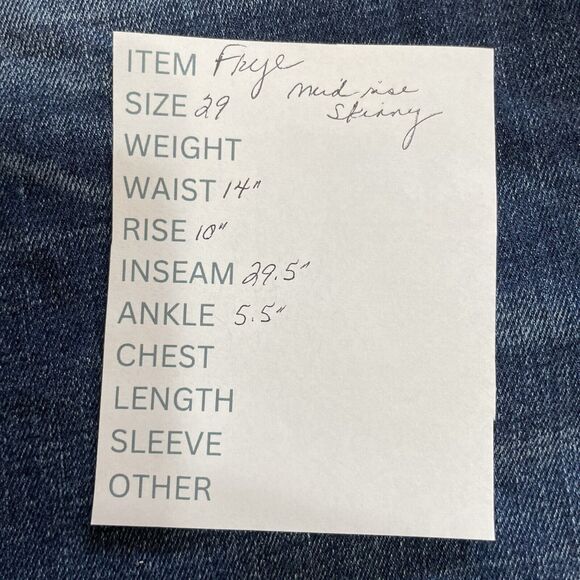 ITEM Frye
SIZE 29 mid rise
skinny
WEIGHT
WAIST 14"
RISE 10"
INSEAM 29.5"
ANKLE 5.5"
CHEST
LENGTH
SLEEVE
OTHER